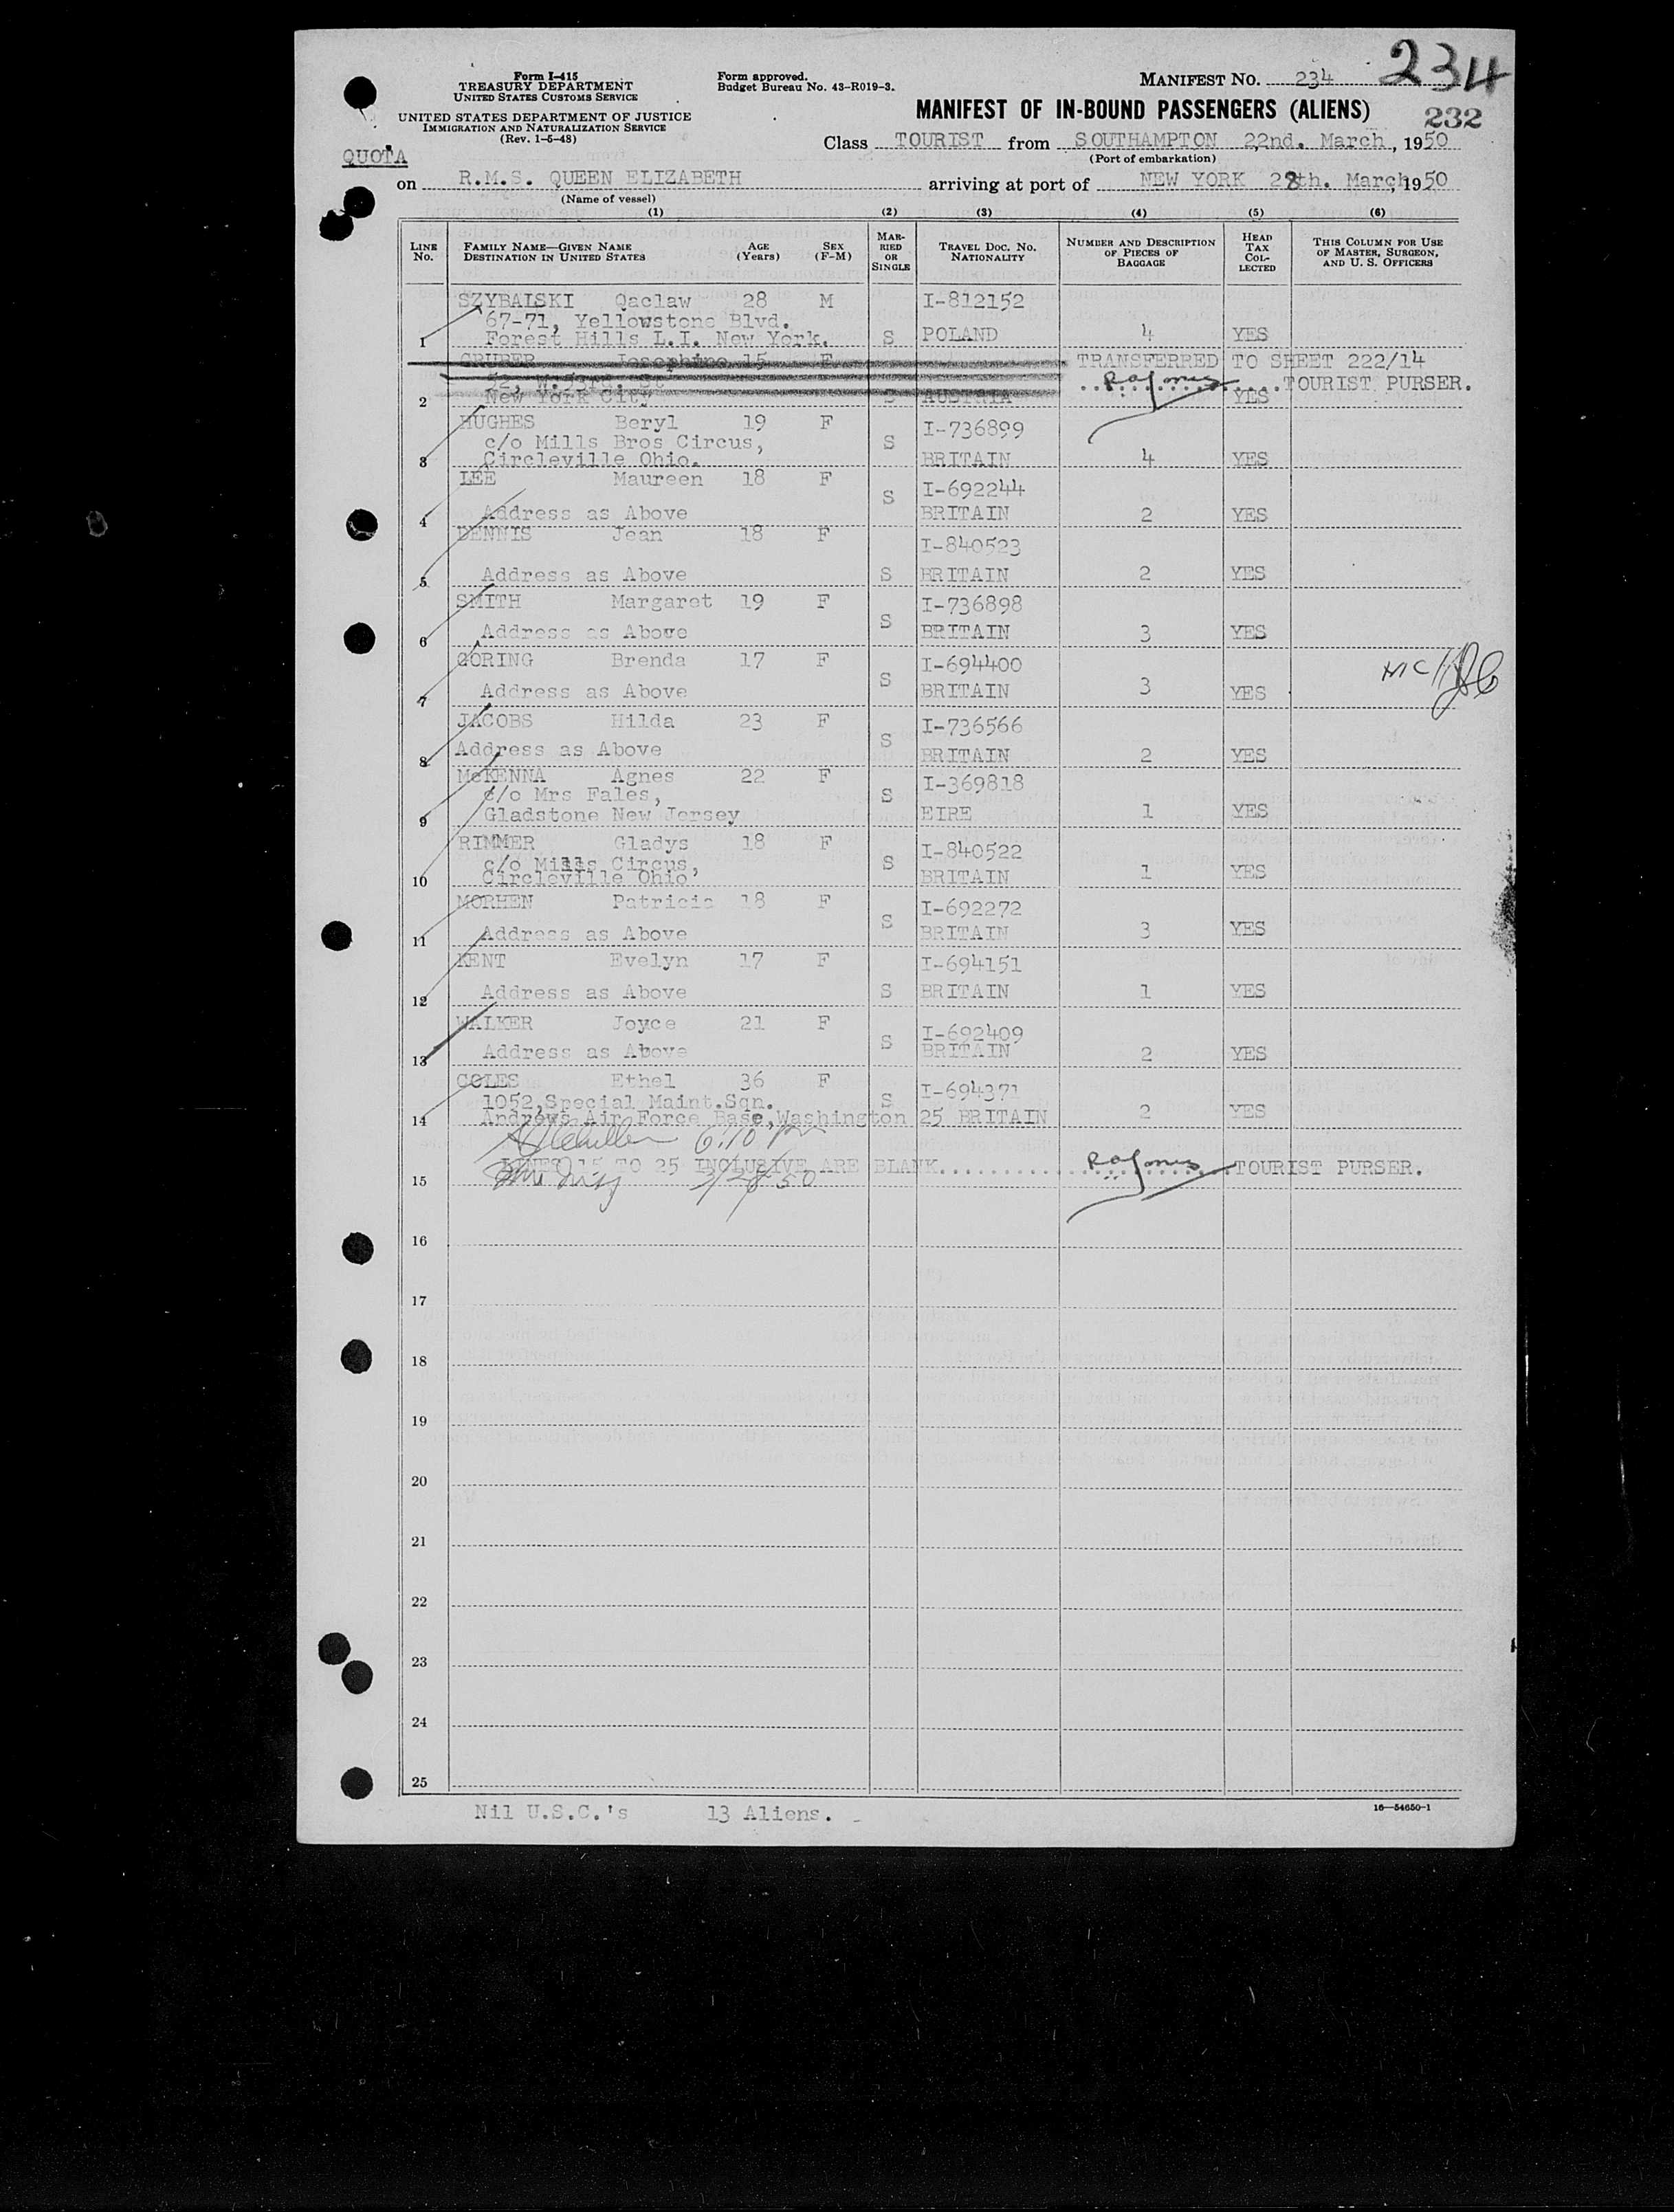 234
Form I-415
TREASURY DEPARTMENT
UNITED STATES CUSTOMS SERVICE
UNITED STATES DEPARTMENT OF JUSTICE
IMMIGRATION AND NATURALIZATION SERVICE
(Rev. 1-5-48)
Form approved.
Budget Bureau No. 43-R019-3.
MANIFEST NO. 234
MANIFEST OF IN-BOUND PASSENGERS (ALIENS)
232
QUOTA
Class TOURIST from SOUTHAMPTON 22nd. March, 1950
(Port of embarkation)
on R.M.S. QUEEN ELIZABETH arriving at port of NEW YORK 28th. March, 1950
(Name of vessel)
(1) (2) (3) (4) (5) (6)
LINE No. FAMILY NAME—GIVEN NAME DESTINATION IN UNITED STATES AGE (Years) SEX (F-M) MARRIED OR SINGLE TRAVEL DOC. NO. NATIONALITY NUMBER AND DESCRIPTION OF PIECES OF BAGGAGE HEAD TAX COLLECTED THIS COLUMN FOR USE OF MASTER, SURGEON, AND U. S. OFFICERS
SZYBAISKI Qaclaw 28 M I-812152
67-71, Yellowstone Blvd.
1 Forest Hills L.I. New York. S POLAND 4 YES
GRUBER Josephine 15 F TRANSFERRED TO SHEET 222/14
TOURIST PURSER.
2 New York City S AUSTRIA YES
HUGHES Beryl 19 F I-736899
c/o Mills Bros Circus, S
3 Circleville Ohio. BRITAIN 4 YES
LEE Maureen 18 F I-692244
4 Address as Above S BRITAIN 2 YES
DENNIS Jean 18 F I-840523
5 Address as Above S BRITAIN 2 YES
SMITH Margaret 19 F I-736898
6 Address as Above S BRITAIN 3 YES
GORING Brenda 17 F I-694400
7 Address as Above S BRITAIN 3 YES
JACOBS Hilda 23 F I-736566
8 Address as Above S BRITAIN 2 YES
McKENNA Agnes 22 F I-369818
c/o Mrs Fales, S
9 Gladstone New Jersey EIRE 1 YES
RIMMER Gladys 18 F I-840522
c/o Mills Circus, S
10 Circleville Ohio BRITAIN 1 YES
MORHEN Patricia 18 F I-692272
11 Address as Above S BRITAIN 3 YES
KENT Evelyn 17 F I-694151
12 Address as Above S BRITAIN 1 YES
WALKER Joyce 21 F I-692409
13 Address as Above S BRITAIN 2 YES
COLES Ethel 36 F I-694371
1052,Special Maint.Sqn. S
14 Andrews Air Force Base,Washington 25 BRITAIN 2 YES
6:10 pm
LINES 15 TO 25 INCLUSIVE ARE BLANK. TOURIST PURSER.
15 3/28/50
16
17
18
19
20
21
22
23
24
25
Nil U.S.C.'s 13 Aliens.
16—54650-1